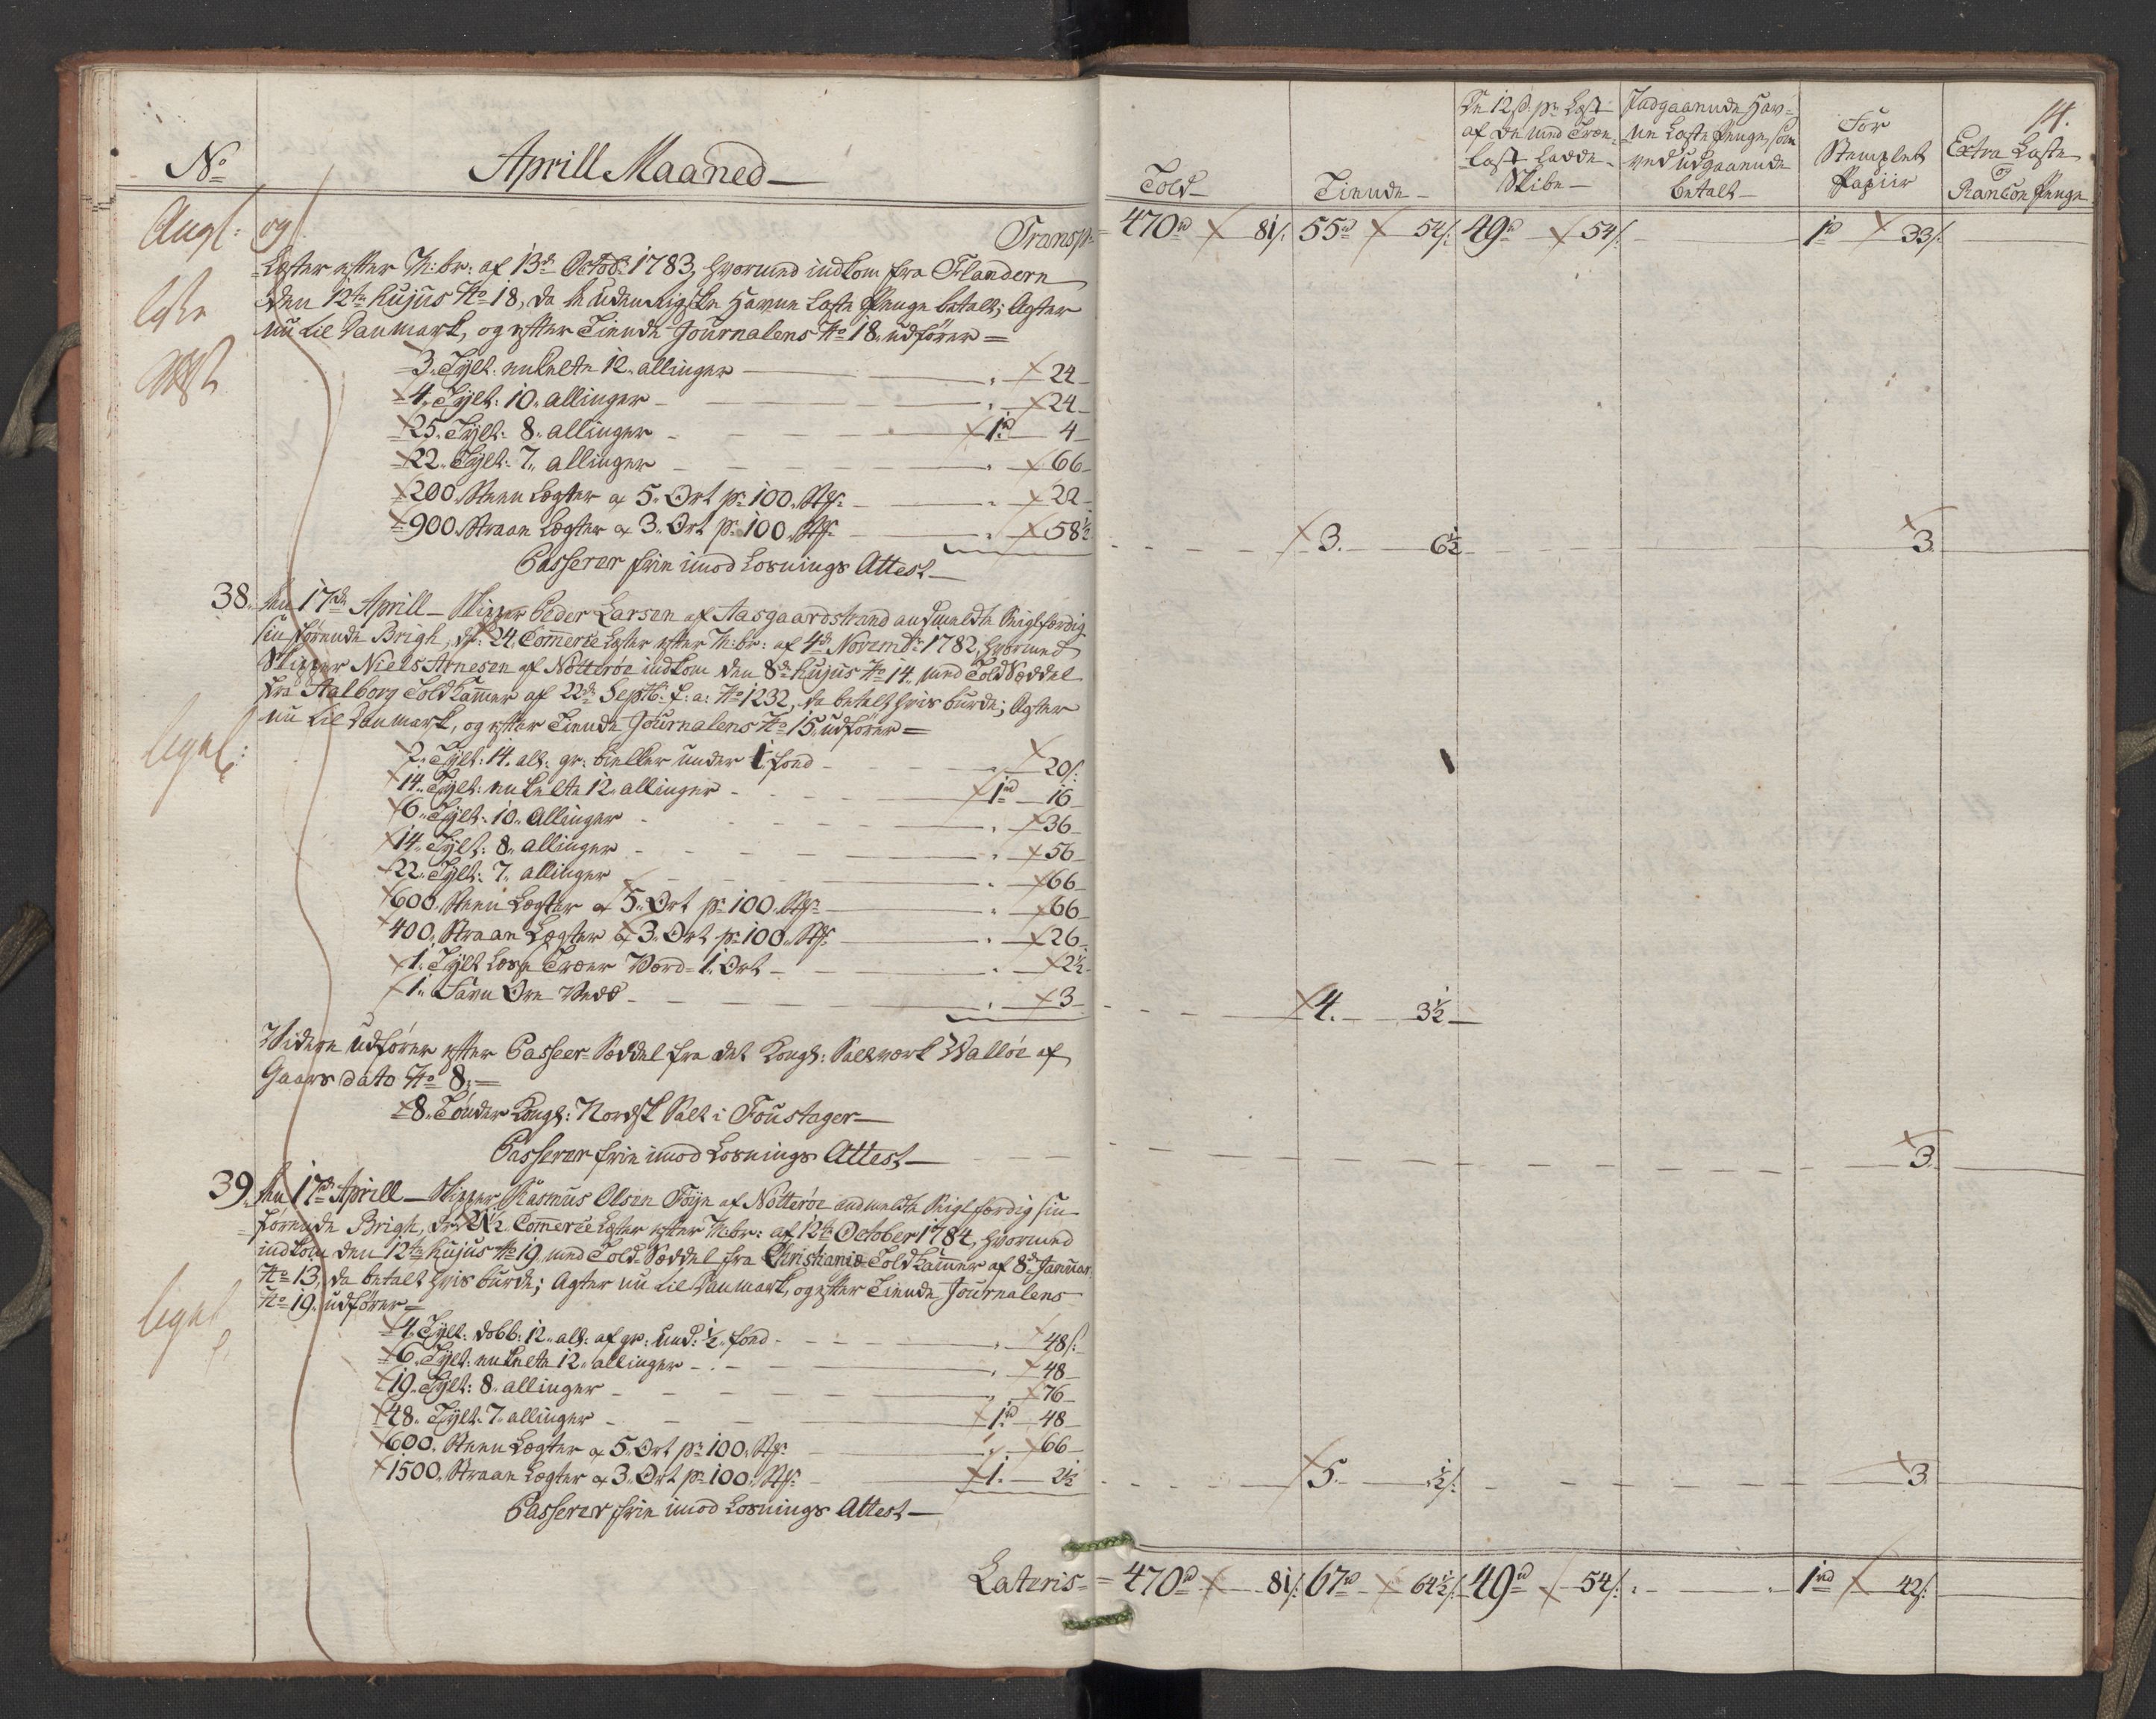 No
Aprill Maaned
14.
Told
Tiende
De 12 s. pr Læst af de med Træ-last ladde Skibe
Indgaaende Havne Laste Penge, som ved udgaaende betalt
For Stemplet Papiir
Extra Laste og Rancon Penge
Transp: 470 rd 81 s. 55 rd 54 s. 49 rd 54 s. 1 rd 33 s.
Læster efter M:br: af 13de Octob: 1783, hvormed indkom fra Flandern
den 12te hujus No 18, da de udenrigske Havne Laste Penge betalt; Agter
nu til Danmark, og efter Tiende Journalens No 18 udfører =
3. Tylt. enkelte 12. allinger 24
4. Tylt: 10. allinger 24
25. Tylt: 8. allinger 1 rd 4
22. Tylt: 7. allinger 66
200. Steen Lægter a 5. Ort pr 100. St: 22
900. Straae Lægter a 3. Ort pr 100. St: 58½
3. 6½ 3.
Passerer frie imod Losnings Attest
38. den 17de Aprill Skipper Peder Larsen af Aasgaardstrand anmeldte Seiglfærdig
sin førende Brigh, dr: 24. Commerce Læster efter M:br: af 4de Novembr 1782, hvormed
Skipper Niels Arnesen af Nötteröe indkom den 8de hujus No 14, med Told Sæddel
fra Aalborg Told Kammer af 22de Septb: f: a: No 1232, da betalt hvis burde; Agter
nu til Danmark, og efter Tiende Journalens No 15 udfører =
2. Tylt: 14. all: gr: bielker under 1. food 20 s.
14. Tylt: enkelte 12. allinger 1 rd 16
6. Tylt: 10. Allinger 36
14. Tylt: 8. allinger 56
22. Tylt: 7. allinger 66
600. Steen Lægter a 5. Ort pr 100. St: 66
400. Straae Lægter a 3. Ort pr 100. St: 26
1. Tylt Træer Værd 1. Ort 2½
1. Favn Ore Vedd 3
4. 3½
Widere udfører efter Passeer-Sæddel fra det Kongl: Saltværk Walløe af
Gaars dato No 8,=
8. Tønder Kongl: Norsk Salt i Foustager
Passerer frie imod Losnings Attest 3.
39. den 17de Aprill Skipper Rasmus Olsen Föyn af Nötteröe anmeldte Seiglfærdig sin
førende Brigh, dr: Commerce Læster efter M:br: af 12te October 1784, hvormed
indkom den 12te hujus No 19, med Told-Sæddel fra Christiania Told Kammer af 8de Januar
No 13, da betalt hvis burde; Agter nu til Danmark, og efter Tiende Journalens
No 19. udfører =
4. Tylt: dobb: 12. all: af gr: und: ½ food 48 s.
6. Tylt: enkelte 12. allinger 48
19. Tylt: 8. allinger 76
48. Tylt: 7. allinger 1 rd 48
600. Steen Lægter a 5. Ort pr 100. St: 66
1500. Straae Lægter a 3. Ort pr 100. St: 1. 2½
5. ½ s. 3
Passerer frie imod Losnings Attest
Lateris = 470 rd 81 s. 67 rd 64½ s. 49 rd 54 s. 1 rd 42 s.